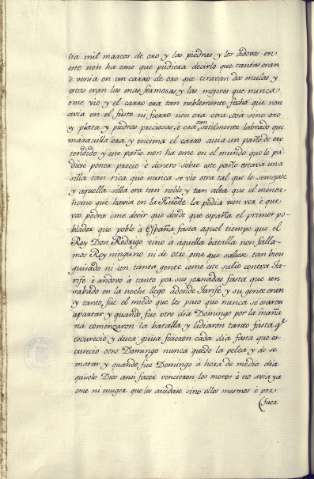 tra mil marcos de oro y las piedras y los adores en
este non ha ome que pudiera decirlo que tantas eran
è venia en un carro de oro que tiravan dos mulas y
estas eran las mas fermosas y las mejores que nunca
ome vio y el carro era tan noblemente fecho que non
avia en el fusta ni fierro non era otra cosa sino oro
y plata y piedras preciosas è era tan sutilmente labrado que
maravilla era y encima el carro avia un paño de oro
tendido y este paño non ha ome en el mundo que le pu
diese poner precio è dentro sobre este paño estava una
silla tan rica que nunca se vio otra tal que le semejase
y aquella silla era tan noble y tan alta que el menor
home que havia en la Hueste la podia bien ver è que
vos podria ome decir que desde que españa el primer po-
blador que poblo a España fasta aquel tiempo que el
Rey Don Rodrigo vino a aquella batalla non falla-
mos Rey ninguno ni de otro ome que saliese tan bien
guisado ni con tanta gente como este salió contra Ta-
rife è anduvo a tanto por sus jornadas fasta que un
sabado en la noche llego adonde Tarife y su gente eran
y tanto fue el miedo que les puso que nunca se osaron
apartar y quando fue otro dia Domingo por la maña
na comenzaron la batalla y lidiaron tanto fasta q.e
escurecio y desta guisa ficieron cada dia fasta que es-
cureció otro Domingo nunca quedó la pelea y de se
matar y quando fue Domingo à hora de medio dia
quisole Dios ansi facer vencieron los moros è no avia ya
ome ni muger que les ayudase sino ellos mismos è por
facer